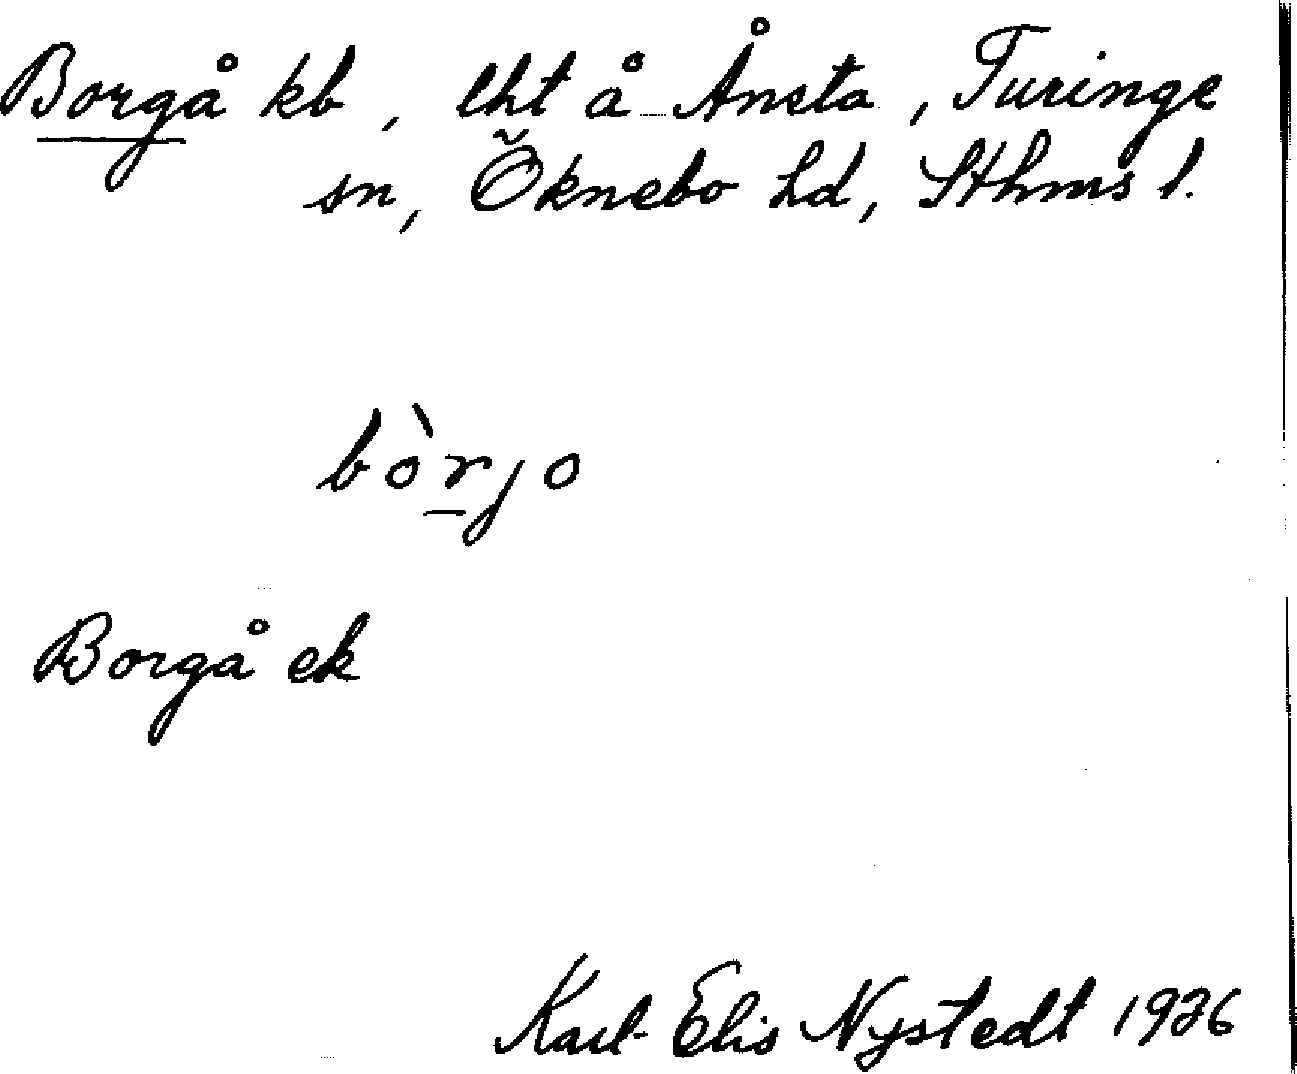 Borgå kb, lht å Ånsta, Turinge
sn, Öknebo hd, Sthms l.
bòrjo
Borgå ek
Karl-Elis Nystedt 1936